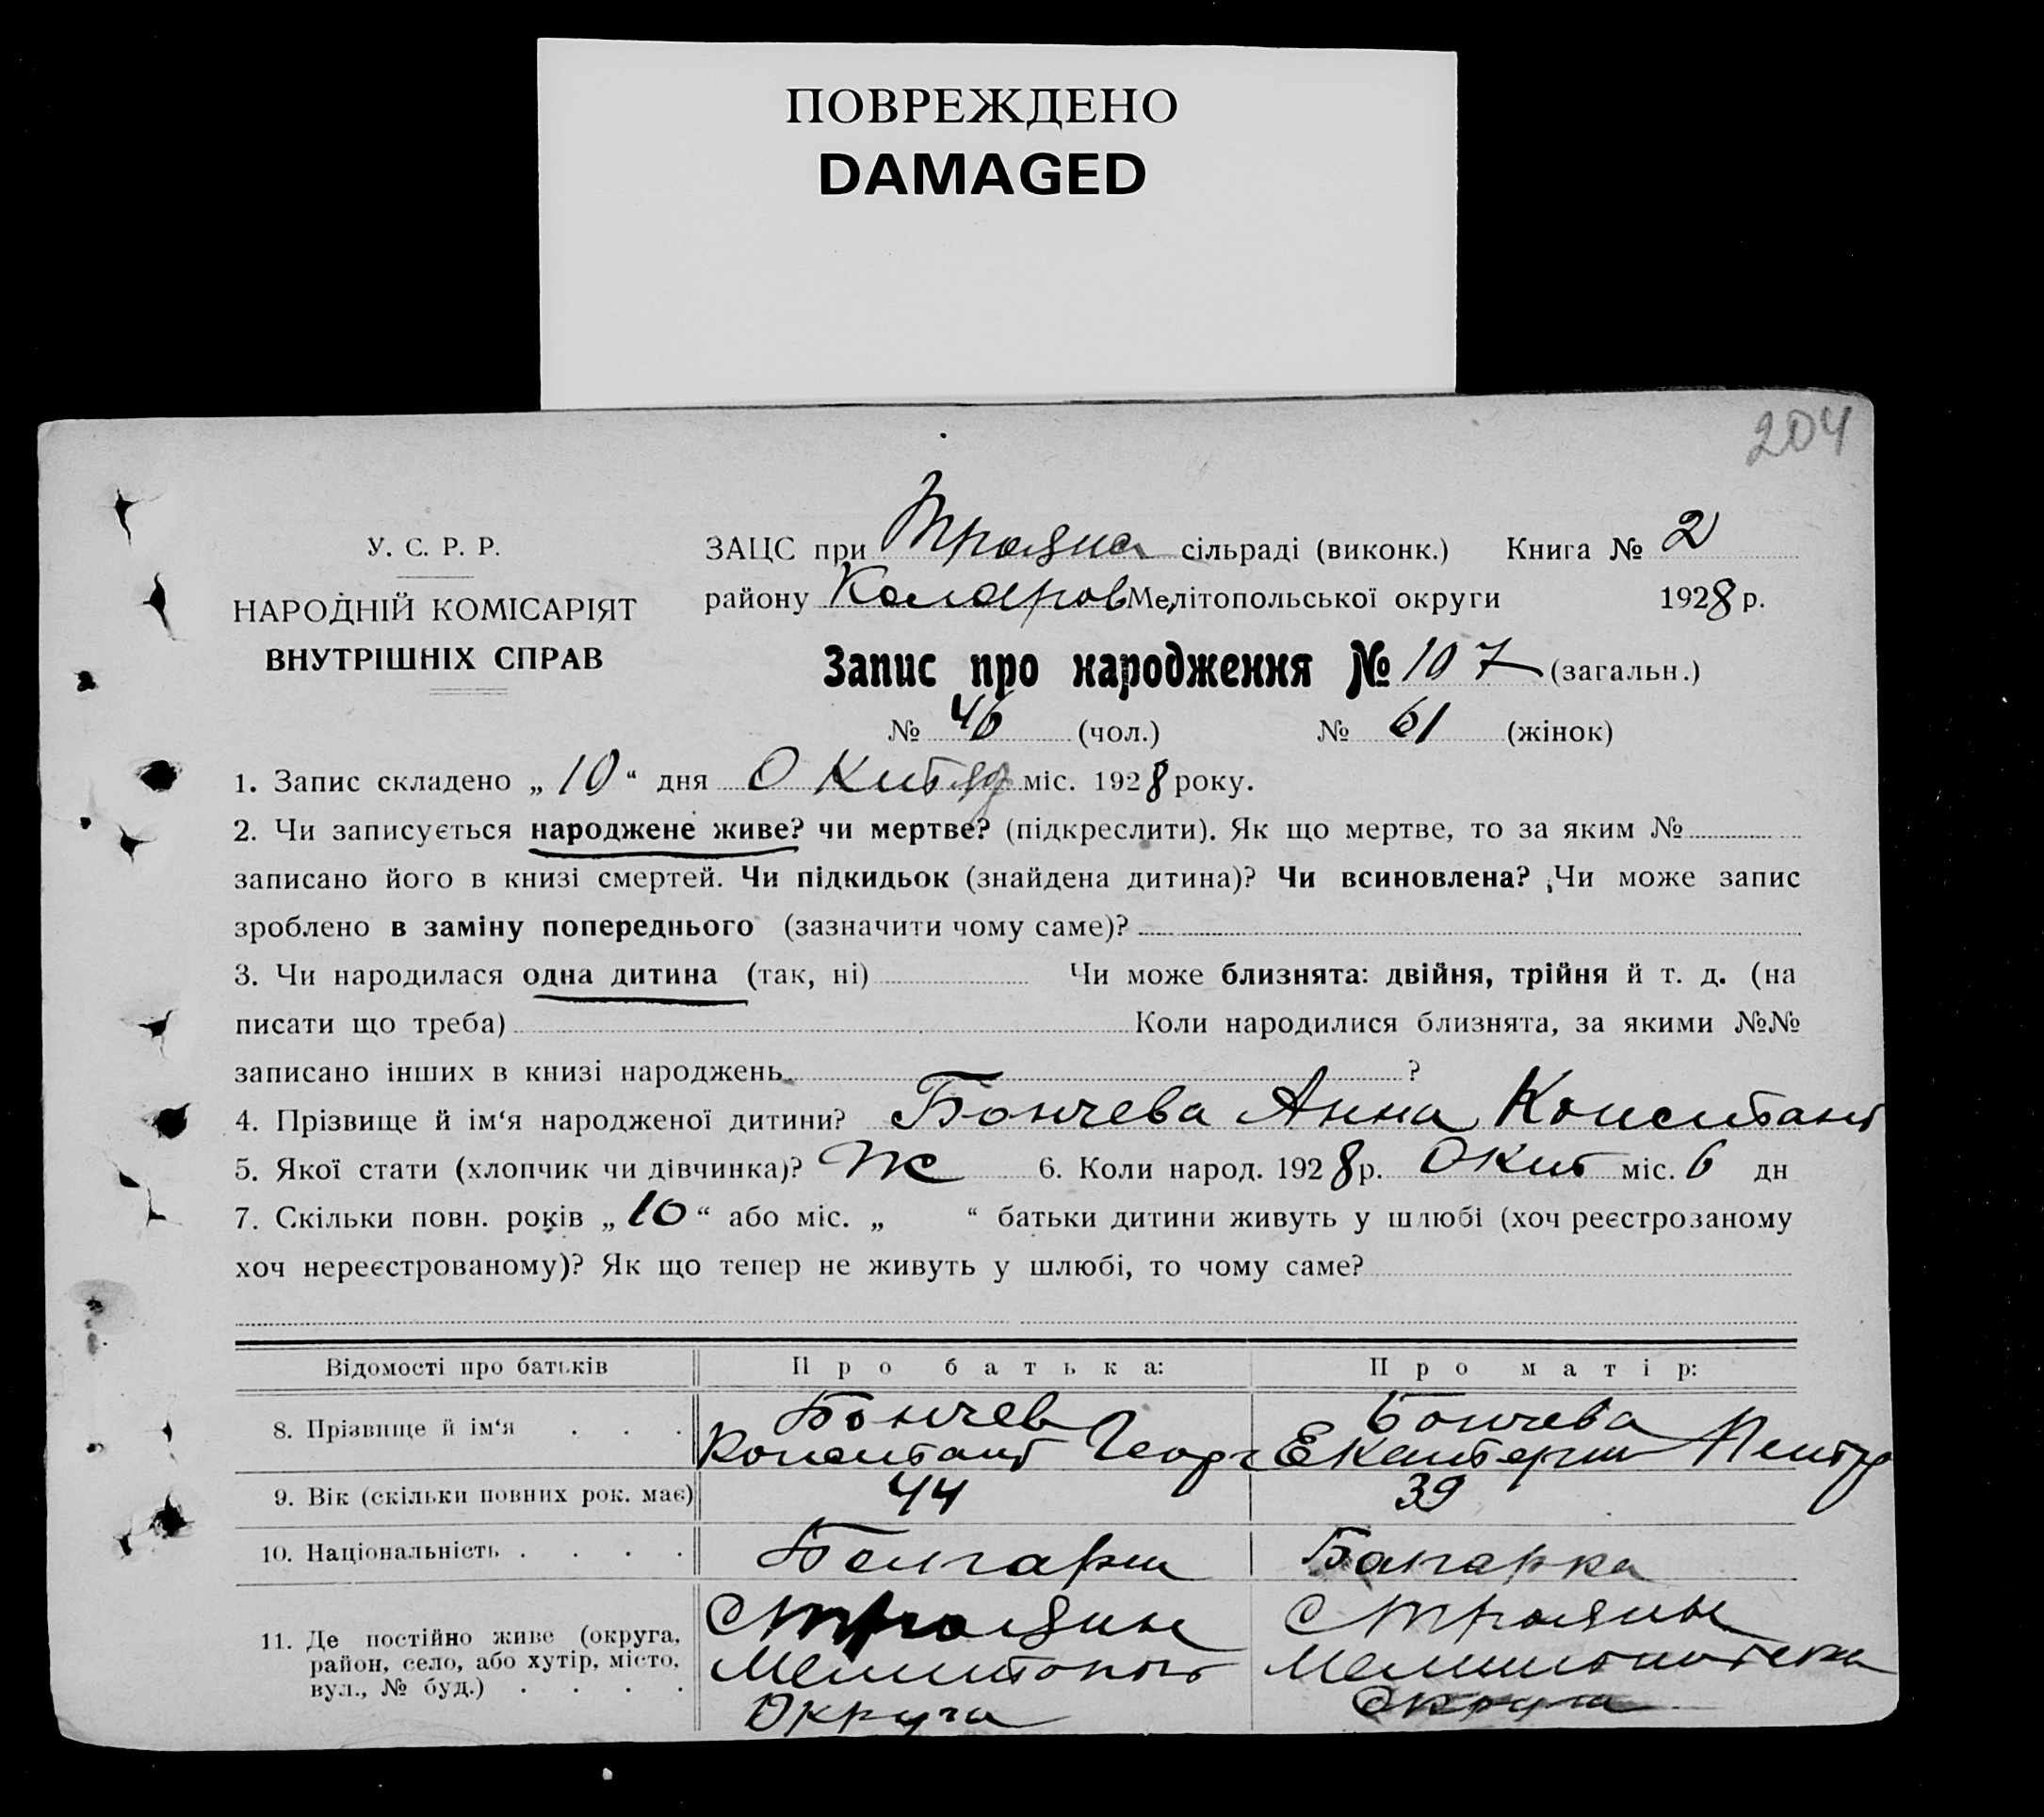 ПОВРЕЖДЕНО
DAMAGED
204
У. С. Р. Р.
НАРОДНІЙ КОМІСАРІЯТ
ВНУТРІШНІХ СПРАВ
ЗАЦС при Трояна сільраді (виконк.) Книга № 2
району Коларов Мелітопольської округи 1928 р.
Запис про народження № 107 (загальн.)
№ 46 (чол.) № 61 (жінок)
1. Запис складено „ 10 “ дня Октяб міс. 1928 року.
2. Чи записується народжене живе? чи мертве? (підкреслити). Як що мертве, то за яким №
записано його в книзі смертей. Чи підкидьок (знайдена дитина)? Чи всиновлена? Чи може запис
зроблено в заміну попереднього (зазначити чому саме)?
3. Чи народилася одна дитина (так, ні) Чи може близнята: двійня, трійня й т. д. (на
писати що треба) Коли народилися близнята, за якими №№
записано інших в книзі народжень ?
4. Прізвище й ім‘я народженої дитини? Бончева Анна Констант
5. Якої стати (хлопчик чи дівчинка)? Ж 6. Коли народ. 1928 р. Окт міс. 6 дн
7. Скільки повн. років „ 10 “ або міс. „ “ батьки дитини живуть у шлюбі (хоч реєстрозаному
хоч нереєстрованому)? Як що тепер не живуть у шлюбі, то чому саме?
Відомості про батьків Про батька: Про матір:
8. Прізвище й ім‘я . . . Бончев Констант Георг Бончева Екатерин Петр
9. Вік (скільки повних рок. має) 44 39
10. Національність . . . . Болгарин Балгарка
11. Де постійно живе (округа, С Трояны С Трояны
район, село, або хутір, місто, Мелитопол Мелитопольска
вул., № буд.) . . . . Округа Округа